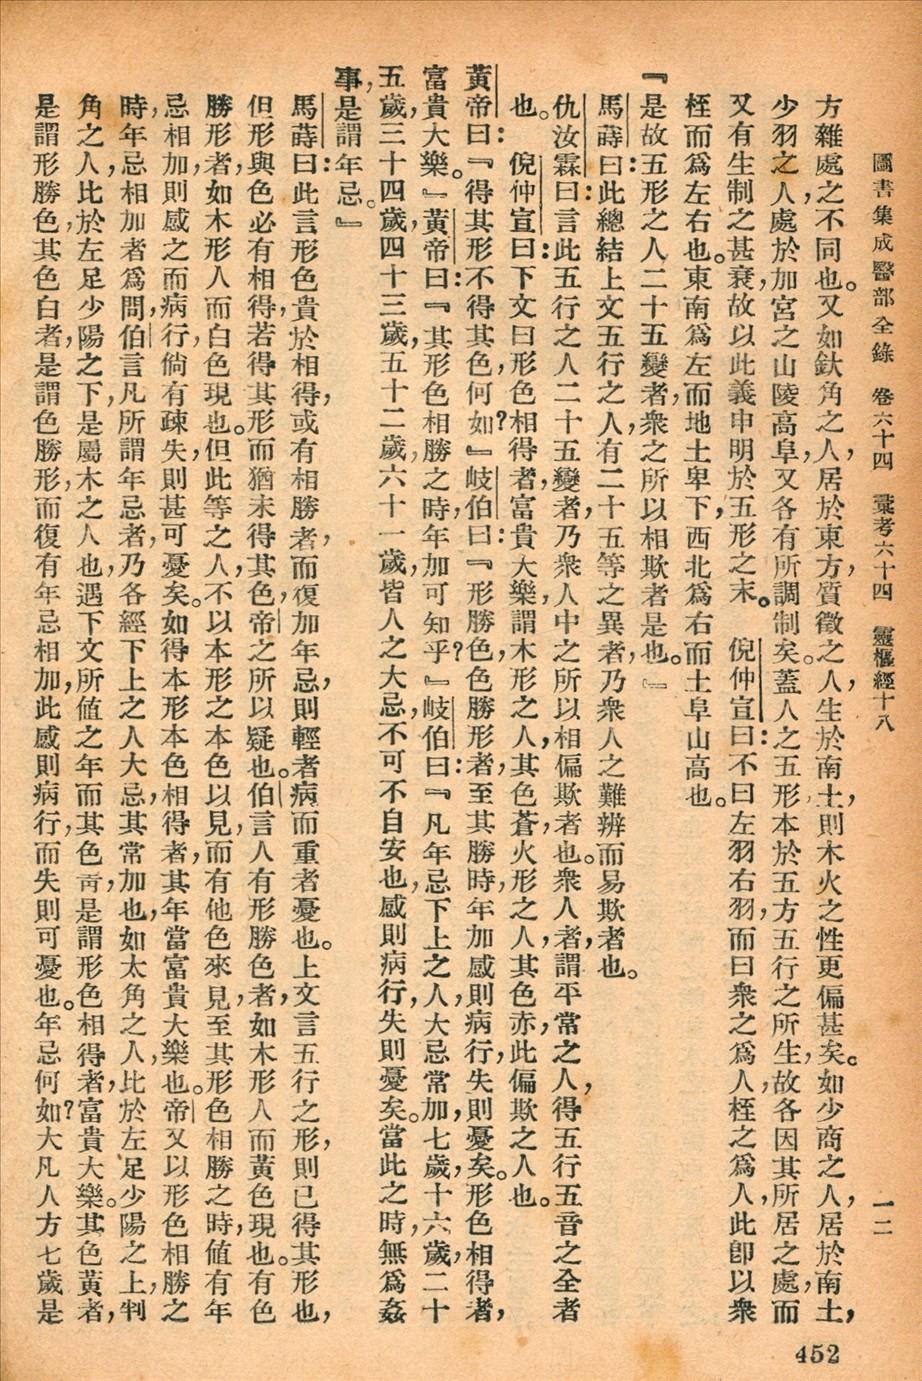 圖書集成醫部全錄　卷六十四　彙考六十四　靈樞經十八　一二
方雜處之不同也。又如釱角之人，居於東方，質徵之人，生於南土，則木火之性更偏甚矣。如少商之人，居於南土，
少羽之人，處於加宮之山陵高阜，又各有所調制矣。蓋人之五形本於五方五行之所生，故各因其所居之處，而
又有生制之甚衰，故以此義申明於五形之末。　倪仲宣曰：不曰左羽右羽，而曰衆之爲人，桎之爲人，此卽以衆
桎而爲左右也。東南爲左，而地土卑下，西北爲右，而土阜山高也。
『是故五形之人二十五變者，衆之所以相欺者是也。』
馬蒔曰：此總結上文五行之人，有二十五等之異者，乃衆人之難辨而易欺者也。
仇汝霖曰：言此五行之人二十五變者，乃衆人中之所以相偏欺者也。衆人者，謂平常之人，得五行五音之全者
也。　倪仲宣曰：下文曰形色相得者，富貴大樂，謂木形之人，其色蒼，火形之人，其色赤，此偏欺之人也。
黃帝曰：『得其形不得其色，何如？』岐伯曰：『形勝色，色勝形者，至其勝時，年加感則病行，失則憂矣。形色相得者，
富貴大樂。』黃帝曰：『其形色相勝之時，年加可知乎？』岐伯曰：『凡年忌下上之人，大忌常加，七歲，十六歲，二十
五歲，三十四歲，四十三歲，五十二歲，六十一歲，皆人之大忌，不可不自安也，感則病行，失則憂矣。當此之時，無爲姦
事，是謂年忌。』
馬蒔曰：此言形色貴於相得，或有相勝者，而復加年忌，則輕者病而重者憂也。上文言五行之形，則已得其形也，
但形與色必有相得，若得其形而猶未得其色，帝之所以疑也。伯言人有形勝色者，如木形人而黃色現也。有色
勝形者，如木形人而白色現也。但此等之人，不以本形之本色以見，而有他色來見，至其形色相勝之時，値有年
忌相加，則感之而病行，倘有疎失，則甚可憂矣。如得本形本色相得者，其年當富貴大樂也。帝又以形色相勝之
時，年忌相加者爲問，伯言凡所謂年忌者，乃各經下上之人大忌，其常加也，如太角之人，比於左足少陽之上，判
角之人，比於左足少陽之下，是屬木之人也，遇下文所値之年而其色靑，是謂形色相得者，富貴大樂。其色黃者，
是謂形勝色，其色白者，是謂色勝形，而復有年忌相加，此感則病行，而失則可憂也。年忌何如？大凡人方七歲是
452